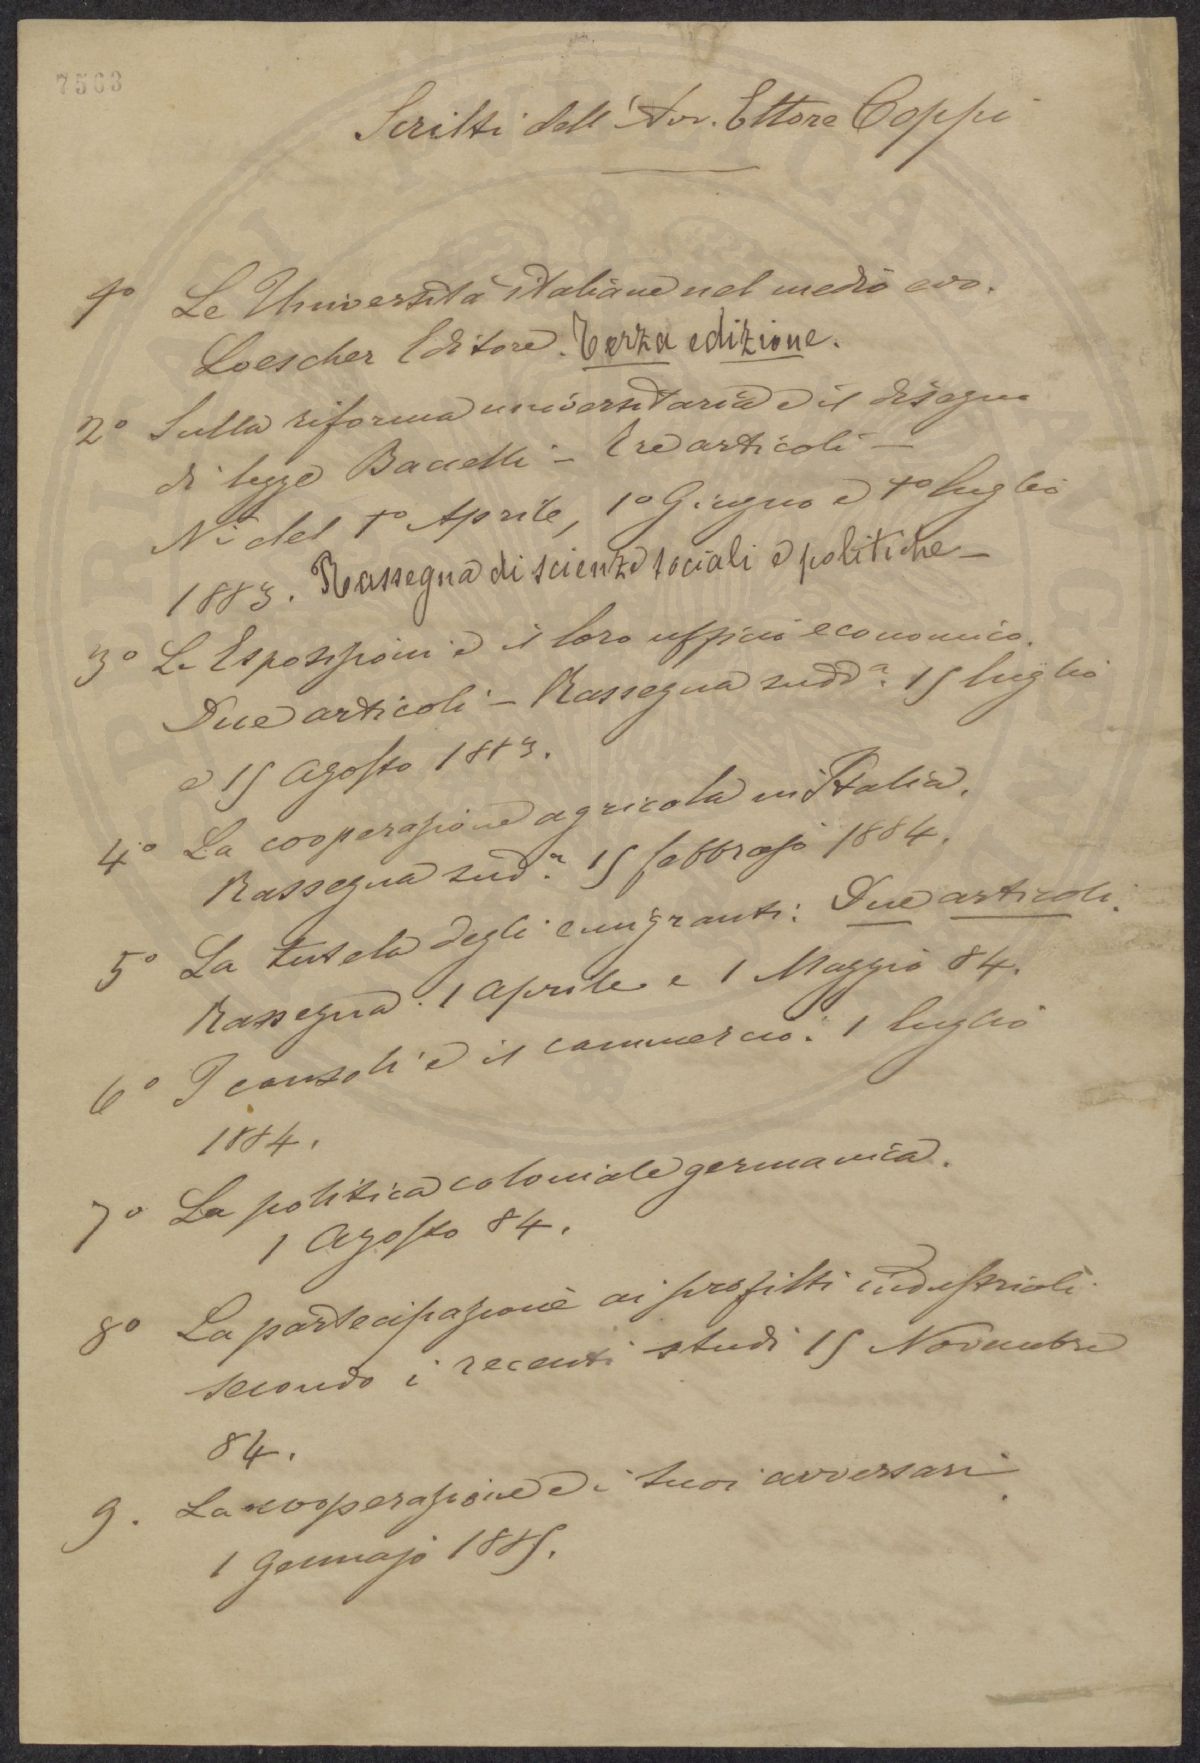 7563
Scritti dell'Avv. Ettore Coppi
1º Le Università italiane nel medio evo.
Loescher Editore. Terza edizione.
2º Sulla riforma universitaria e il disegno
di legge Baccelli – Tre articoli –
Ni del 1º Aprile, 1º Giugno e 1º luglio
1883. Rassegna di scienze sociali e politiche –
3º Le Esposizioni e il loro ufficio economico.
Due articoli – Rassegna sudda. 15 luglio
e 15 Agosto 1883.
4º La cooperazione agricola in Italia.
Rassegna suda. 15 febbrajo 1884.
5º La tutela degli emigranti: Due articoli.
Rassegna. 1 Aprile e 1 Maggio 84.
6º I consoli e il commercio. 1 luglio
1884.
7º La politica coloniale germanica.
1 Agosto 84.
8º La partecipazione ai profitti industriali
secondo i recenti studi 15 Novembre
84.
9. La cooperazione e i suoi avversari.
1 Gennajo 1885.